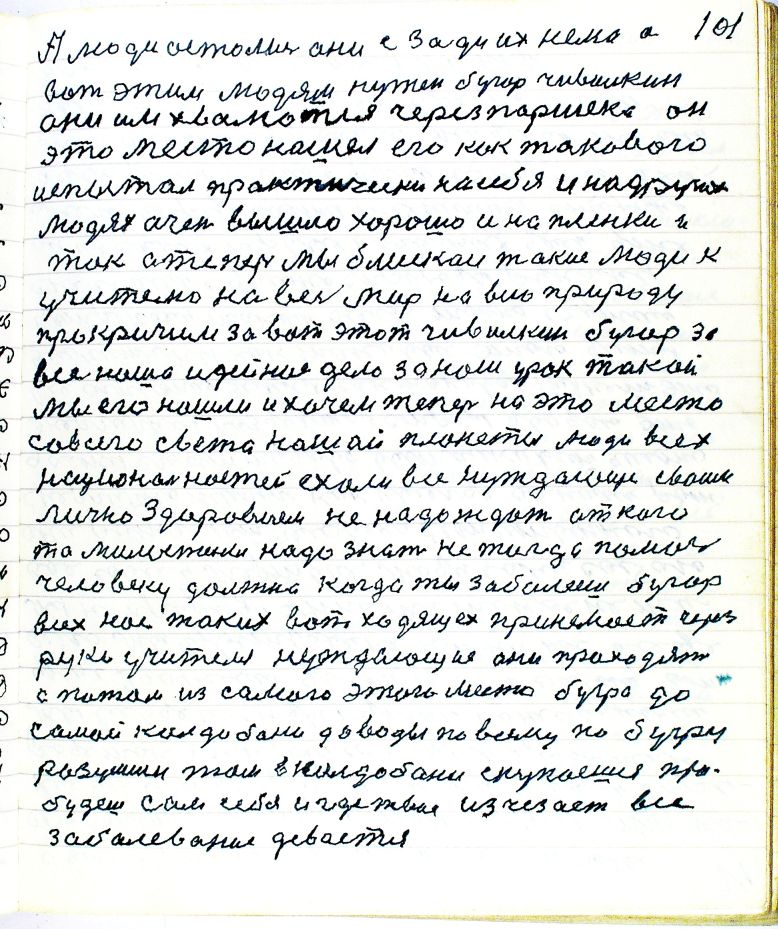 101
А люди остолис ани с зади их нема а
вот этим людям нужен бугор чивилкин
они им хвалются через паршека он
это место нашел его как такового
испытал практически на себя и на других
людях очен вышло хорошо и на пленки и
так а тепер мы близкаи такие люди к
учителю на вес мир на всю природу
прокричим за вот этот чивилкин бугор за
все наша идейное дело за наш урок такой
мы его нашли и хочем тепер на это место
со всего света нашай планеты люди всех
национал ностей ехали все нуждающие своим
лично Здаровием не надо ждат аткого
та милостини надо знат не тагда помоч
человеку должна когда ты забалеш бугор
всех нос таких вот ходящех принемает через
руки учителя нуждающие они проходят
а патом из самого этого места бугра до
самой калдобани доводы по всему по бугру
разуцши там в калдобани скупаешся про-
будеш сам себя и где твое изчезает все
забалевание девается